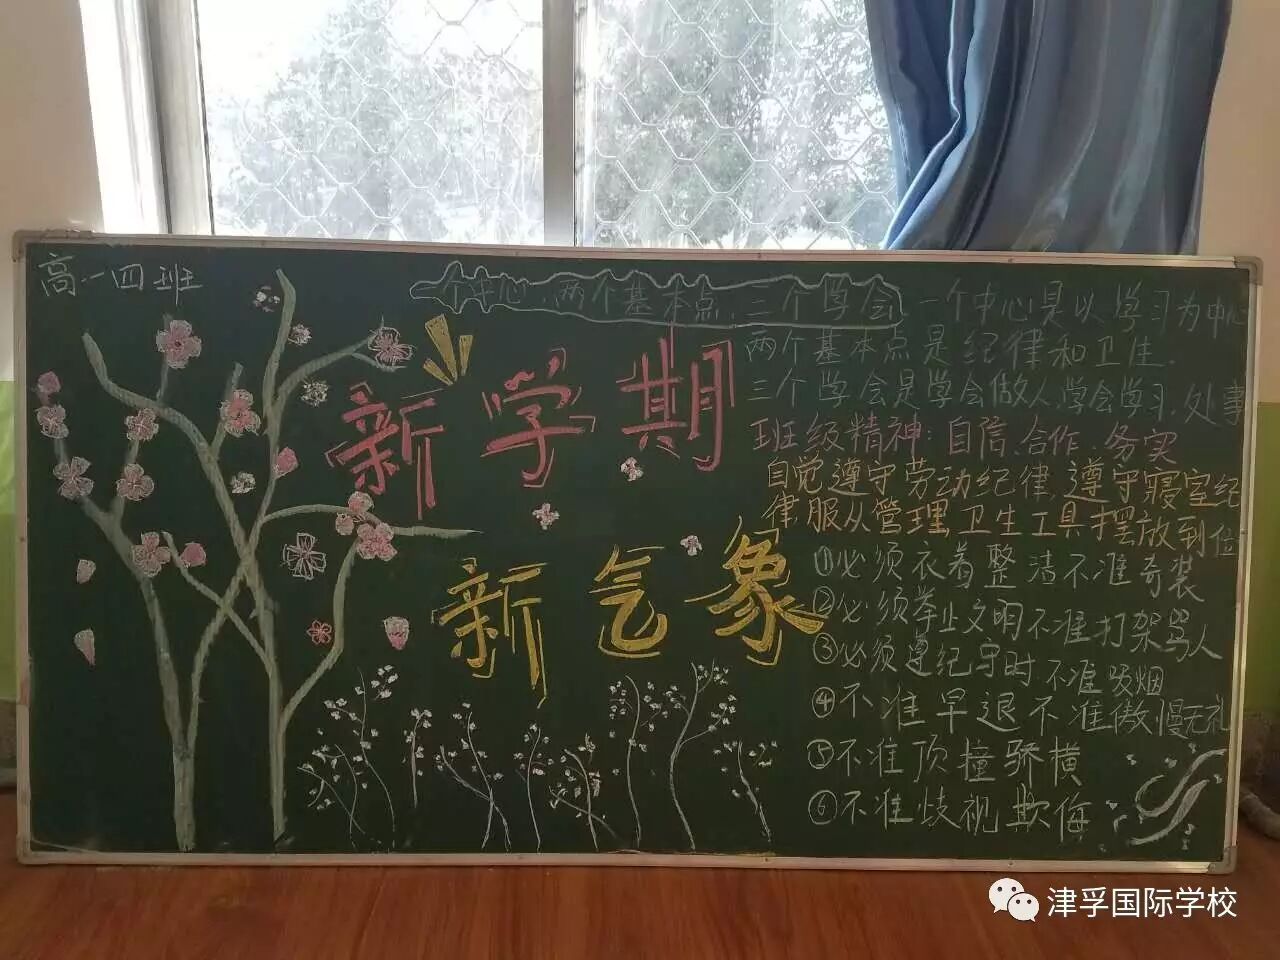 高一四班
一个中心、两个基本点、三个学会
新学期
新气象
一个中心是以学习为中心
两个基本点是纪律和卫生.
三个学会是学会做人.学会学习.处事
班级精神:自信.合作.务实
自觉遵守劳动纪律,遵守寝室纪
律,服从管理,卫生工具摆放到位
①必须衣着整洁不准奇装
②必须举止文明不准打架骂人
③必须遵纪守时.不准吸烟
④不准早退不准傲慢无礼
⑤不准顶撞骄横
⑥不准歧视欺侮
津孚国际学校